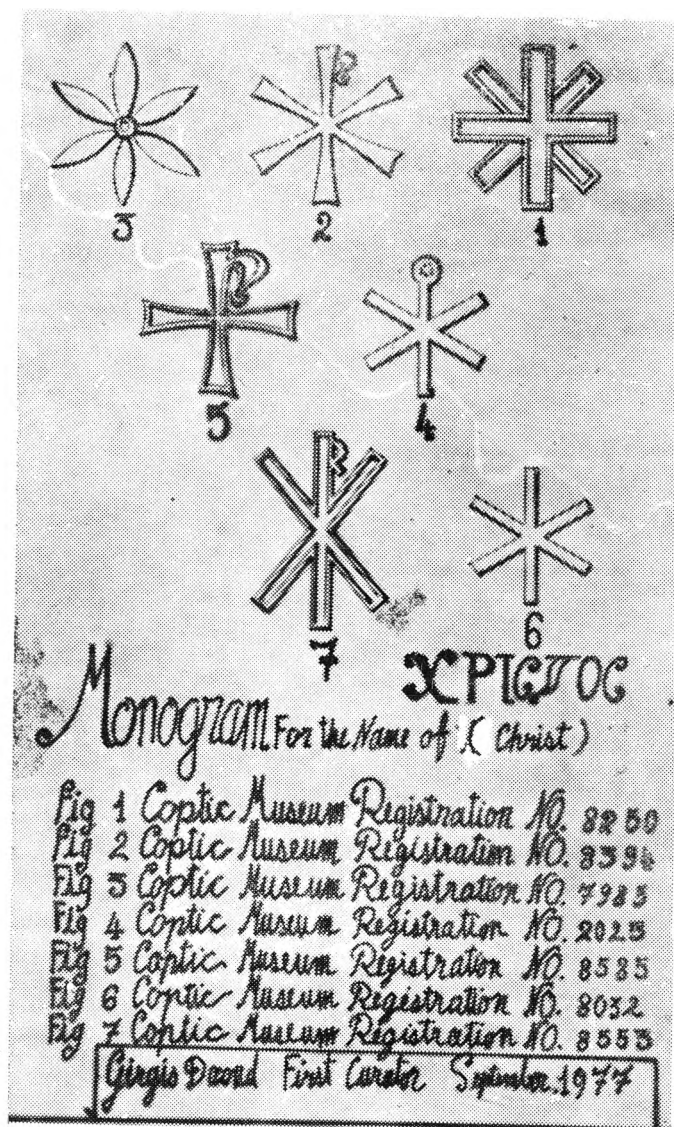 3 2 1
5 4
7 6
ΧΡΙCΤΟC
Monogram For the Name of ( Christ )
Fig 1 Coptic Museum Registration NO. 8250
Fig 2 Coptic Museum Registration NO. 8394
Fig 3 Coptic Museum Registration NO. 7983
Fig 4 Coptic Museum Registration NO. 2023
Fig 5 Coptic Museum Registration NO. 8585
Fig 6 Coptic Museum Registration NO. 8032
Fig 7 Coptic Museum Registration NO. 8553
Girgis Daoud First Curator September.1977